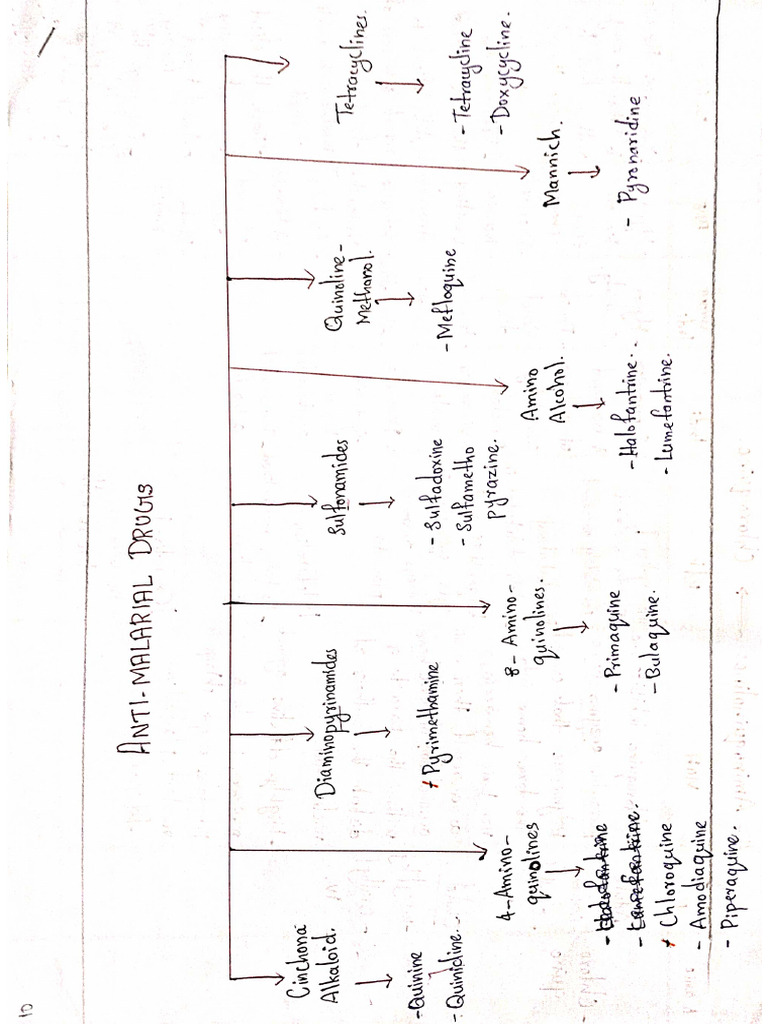 10
ANTI-MALARIAL DRUGS
Cinchona
Alkaloid.
- Quinine
- Quinidine.
4-Amino-
quinolines
- Halofantrine
- Lumefantrine.
* Chloroquine
- Amodiaquine
- Piperaquine.
Diaminopyrinamides
* Pyrimethamine
8-Amino-
quinolines.
- Primaquine
- Bulaquine.
Sulfonamides
- Sulfadoxine
- Sulfametho
pyrazine.
Amino
Alcohol.
- Halofantrine.
- Lumefantrine.
Quinoline-
Methanol.
- Mefloquine
Mannich.
- Pyronaridine
Tetracyclines.
- Tetracycline
- Doxycycline.